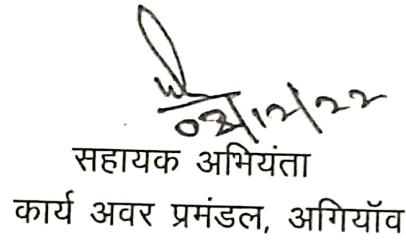 02/12/22
सहायक अभियंता
कार्य अवर प्रमंडल, अगियॉव